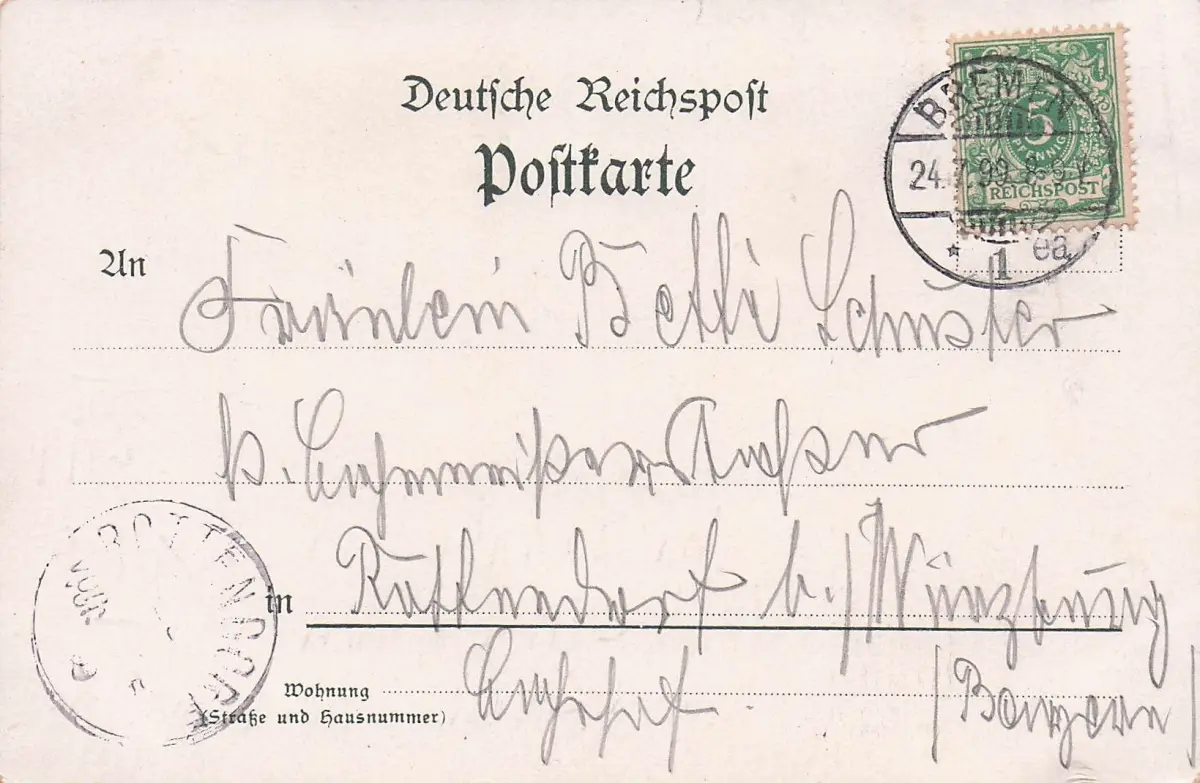 Deutsche Reichspost
Postkarte
BREMEN
5
PFENNIG
24.7.99. 8-9V
REICHSPOST
* 1 ea
An Fräulein Betti Schuster
p.
ROTTENDORF
VORM
in Rottendorf b./Würzburg
Wohnung Bahnhof. /Bayern/
(Straße und Hausnummer)